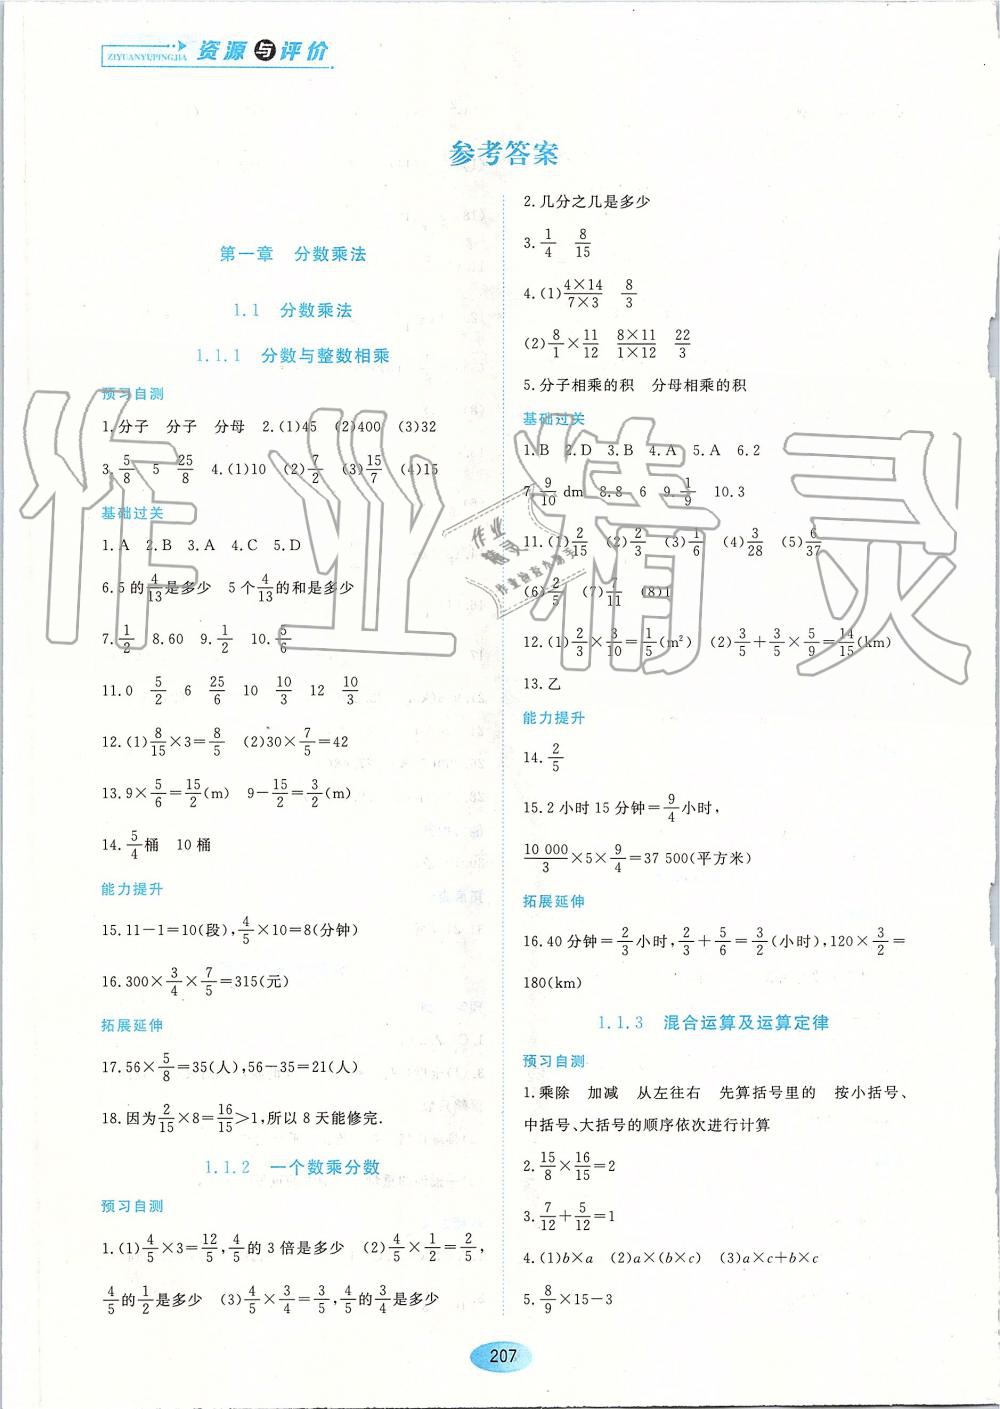 ZIYUANYUPINGJIA 资源与评价
参考答案
第一章 分数乘法
1.1 分数乘法
1.1.1 分数与整数相乘
预习自测
1.分子 分子 分母 2.(1)45 (2)400 (3)32
3.5/8 5 25/8 4.(1)10 (2)7/2 (3)15/7 (4)15
基础过关
1.A 2.B 3.A 4.C 5.D
6.5的4/13是多少 5个4/13的和是多少
7.1/2 8.60 9.1/2 10.5/6
11.0 5/2 6 25/6 10 10/3 12 10/3
12.(1)8/15×3=8/5 (2)30×7/5=42
13.9×5/6=15/2(m) 9-15/2=3/2(m)
14.5/4桶 10桶
能力提升
15.11-1=10(段),4/5×10=8(分钟)
16.300×3/4×7/5=315(元)
拓展延伸
17.56×5/8=35(人),56-35=21(人)
18.因为2/15×8=16/15>1,所以8天能修完.
1.1.2 一个数乘分数
预习自测
1.(1)4/5×3=12/5,4/5的3倍是多少 (2)4/5×1/2=2/5,
4/5的1/2是多少 (3)4/5×3/4=3/5,4/5的3/4是多少
2.几分之几是多少
3.1/4 8/15
4.(1)4×14/7×3 8/3
(2)8/1×11/12 8×11/1×12 22/3
5.分子相乘的积 分母相乘的积
基础过关
1.B 2.D 3.B 4.A 5.A 6.2
7.9/10 dm 8.8 6 9.1/9 10.3
11.(1)2/15 (2)2/3 (3)1/6 (4)3/28 (5)6/37
(6)2/5 (7)7/11 (8)1
12.(1)2/3×3/10=1/5(m²) (2)3/5+3/5×5/9=14/15(km)
13.乙
能力提升
14.2/5
15.2小时15分钟=9/4小时,
10 000/3×5×9/4=37 500(平方米)
拓展延伸
16.40分钟=2/3小时,2/3+5/6=3/2(小时),120×3/2=
180(km)
1.1.3 混合运算及运算定律
预习自测
1.乘除 加减 从左往右 先算括号里的 按小括号、
中括号、大括号的顺序依次进行计算
2.15/8×16/15=2
3.7/12+5/12=1
4.(1)b×a (2)a×(b×c) (3)a×c+b×c
5.8/9×15-3
207
作业精灵
作业
精灵